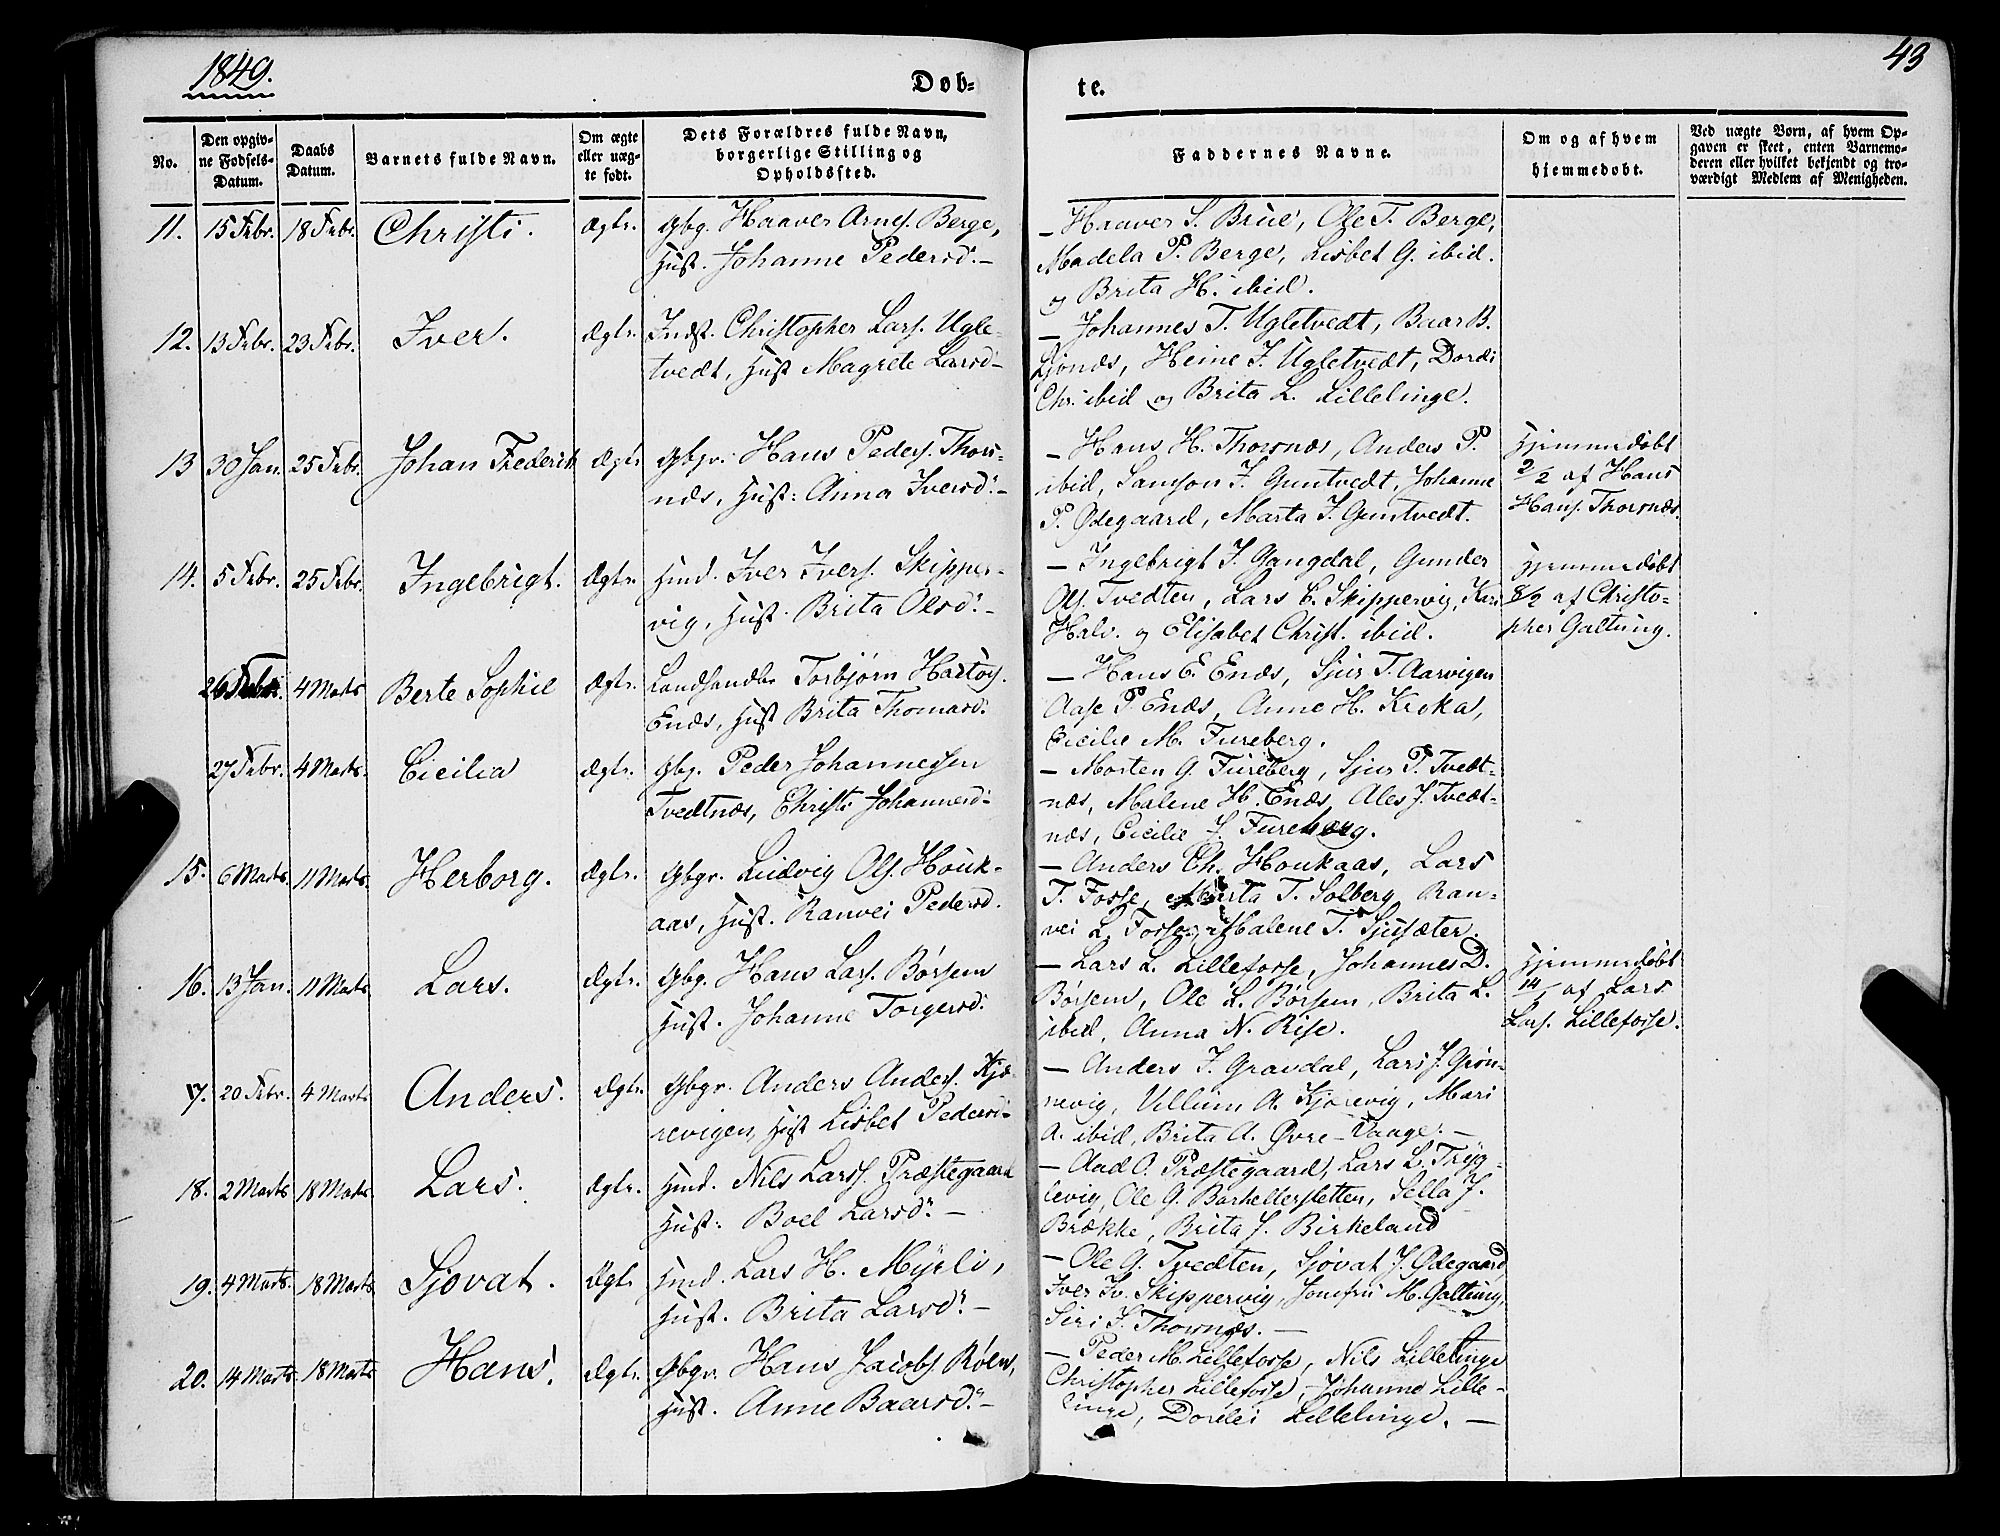 1849.
Døb-
te.
43
No.
Den opgiv-
ne Fødsels-
Datum.
Daabs
Datum.
Barnets fulde Navn.
Om ægte
eller uæg-
te født.
Dets Forældres fulde Navn,
borgerlige Stilling og
Opholdssted.
Faddernes Navne.
Om og af hvem
hjemmedøbt.
Ved uægte Børn, af hvem Op-
gaven er skeet, enten Barnemo-
deren eller hvilket bekjendt og tro-
værdigt Medlem af Menigheden.
11. 15 Febr. 18 Febr. Christi. Ægte. Gbg. Haaver Arnes. Berge,
Hust. Johanne Pedersd. –
– Haaver S. Brue, Ole T. Berge,
Madela P. Berge, Lisbet G. ibid.
og Brita H. ibid.
12. 13 Febr. 23 Febr. Iver. Ægte. Indst. Christopher Lars. Ugle-
tvedt, Hust Magrete Larsd –
– Johannes T. Ugletvedt, Baar B.
Ljonæs, Heine I. Ugletvedt, Dordi
Chr. ibid og Brita L. Lillelinge.
13 30 Jan. 25 Febr. Johan Frederik Ægte Gbgr. Hans Peders. Thors-
næs, Hust: Anna Iversd. –
– Hans H. Thorsnæs, Anders P.
ibid, Samson I. Guntvedt, Johanne
P. Ødegaard, Marta I. Guntvedt.
Hjemmedøbt
2/2 af Hans
Hans. Thorsnæs.
14. 5 Febr. 25 Febr. Ingebrigt. Ægte. Hmd. Iver Ivers. Skipper-
vig, Hust. Brita Olsd. –
– Ingebrigt I. Gangdal, Gunder
Ols. Tvedten, Lars C. Skippervig, Kari
Halv. og Elisabet Christ. ibid.
Hjemmedøbt
8/2 af Christo-
pher Galtung.
26 Febr. 4 Marts Berte Sophie Ægte. Landhandler Torbjørn Hartvigs.
Enæs, Hust Brita Thomasd.
– Hans E. Enæs, Sjur T. Aarvigen
Aase P. Enæs, Anne H. Kroka,
Cicilie M. Fureberg.
27 Febr. 4 Marts. Cicilia Ægte. Gbg. Peder Johannessen
Tvedtnæs, Christi Johannesd. –
– Morten G. Fureberg, Sjur P. Tvedt-
næs, Malene H. Enæs, Ales J. Tvedt-
næs, Cicilie J. Fureberg.
15. 6 Marts 11 Marts. Herborg. Ægte. Gbgr. Ludvig Ols. Houk-
aas, Hust. Ranvei Pedersd.
– Anders Ch. Houkaas, Lars
T. Fosse, Marta T. Solberg, Ran-
vei L. Fosse, Malene T. Sjusæter.
16. 13 Jan. 11 Marts Lars. Ægte. Gbg. Hans Lars. Børsem
Hust. Johanne Torgersd.
– Lars L. Lillefosse, Johannes D.
Børsem, Ole L. Børsem, Brita L.
ibid, Anna N. Rise.
Hjemmedøbt
14/1 af Lars
Lars. Lillefosse.
17. 20 Febr. 4 Marts Anders. Ægte. Gbgr. Anders Anders. Kjæ-
revigen, Hust Lisbet Pedersd. –
– Anders I. Gravdal, Lars J. Grøn-
nevig, Villum A. Kjærevig, Mari
A. ibid, Brita A. Øvre-Vaage. –
18. 2 Marts 18 Marts Lars. Ægte. Hmd. Nils Larss. Præstegaard
Hust: Boel Larsd. –
– Aad O. Præstegaard, Lars L. Tryg-
levig, Ole G. Barhellersletten, Sella J.
Brække, Brita J. Birkeland
19. 4 Marts. 18 Marts. Sjovat. Ægte. Hmd. Lars H. Myrli,
Hust. Brita Larsd. –
– Ole G. Tvedten, Sjovat J. Ødegaard,
Iver Iv. Skippervig, Jomfru M. Galtung,
Siri I. Thorsnæs. –
20. 14 Marts 18 Marts Hans. Ægte. Gbgr. Hans Jacobs. Røen,
Hust. Anne Baarsd. –
– Peder M. Lillefosse, Nils Lillelinge
Christopher Lillefosse, Johanne Lille-
linge, Dordei Lillelinge. –